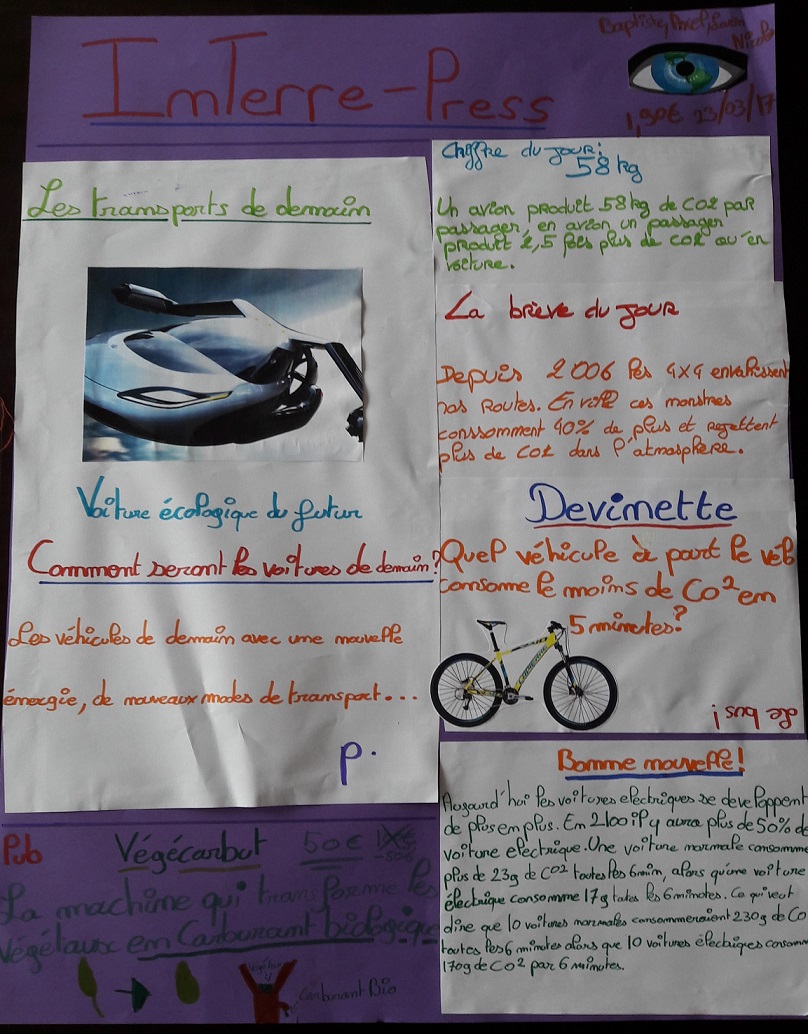 ImTerre-Press
Baptiste, Axel,
Nicola
1,50€ 23/03/17
Les transports de demain
Voiture écologique du futur
Comment seront les voitures de demain?
Les véhicules de demain avec une nouvelle
énergie, de nouveaux modes de transport...
p.
Chiffre du jour:
58 kg
Un avion produit 58 kg de CO2 par
passager, en avion un passager
produit 2,5 fois plus de CO2 qu'en
voiture.
La brève du jour
Depuis 2006 les 4x4 envahissent
nos routes. En ville ces monstres
conssomment 40% de plus et rejettent
plus de CO2 dans l'atmosphère.
Devinette
Quel véhicule à part le vélo
consomme le moins de Co² en
5 minutes?
de bus!
Bonne nouvelle!
Aujourd'hui les voitures electriques se developpent
de plus en plus. En 2100 il y aura plus de 50% de
voiture electrique. Une voiture normale consomme
plus de 23g de CO² toutes les 6 min, alors qu'une voiture
électrique consomme 17g toutes les 6 minutes. Ce qui veut
dire que 10 voitures normales consommeraient 230g de CO
toutes les 6 minutes alors que 10 voitures électriques consomm
170g de CO² par 6 minutes.
Pub Végécarbut 50€
La machine qui transforme les
végétaux en Carburant biologique
Carburant Bio